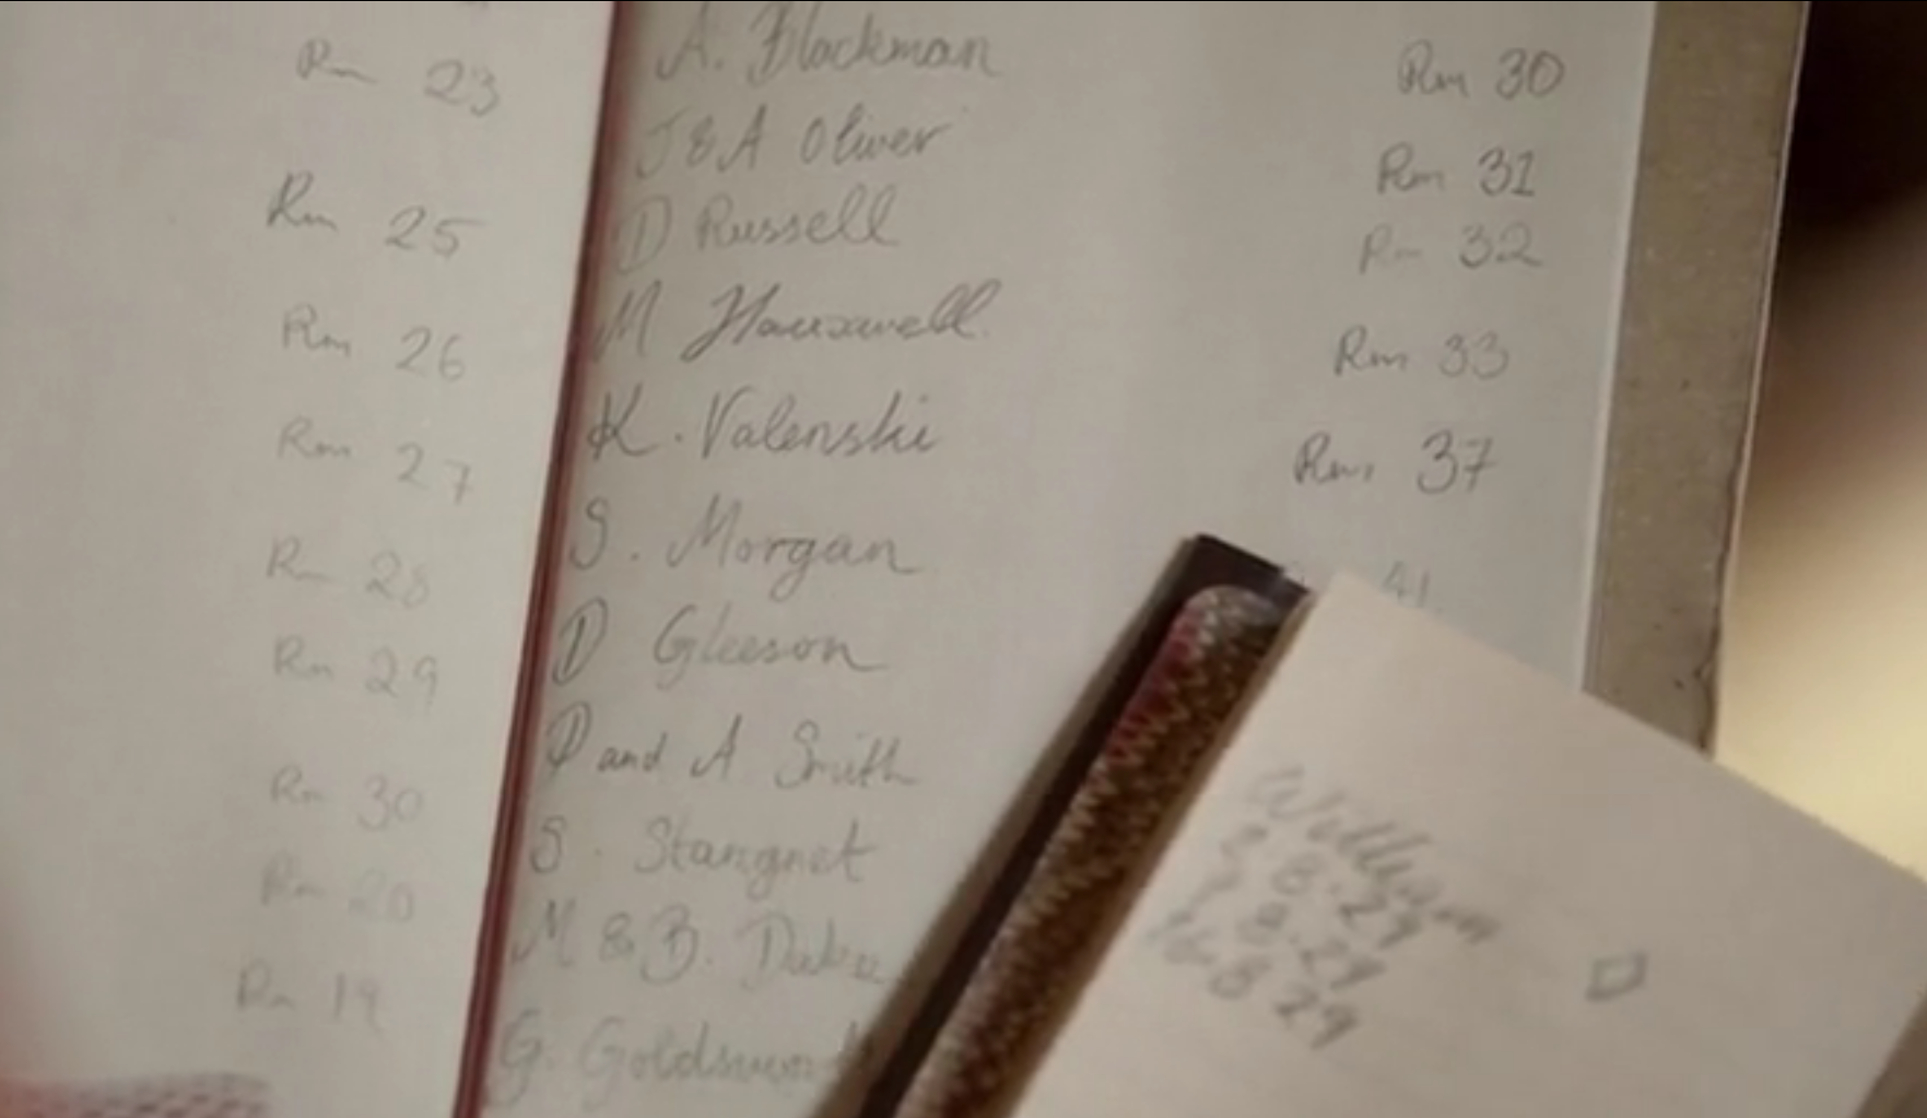 Rm 23
Rm 25
Rm 26
Rm 27
Rm 28
Rm 29
Rm 30
Rm 20
Rm 19
A. Blackman Rm 30
J & A Oliver Rm 31
D Russell Rm 32
M Hauxwell Rm 33
K. Valenski Rm 37
S. Morgan 41
D Gleeson
D and A Smith
S. Stangnet
M & B.
G.
William
8.29
8.29
8 29